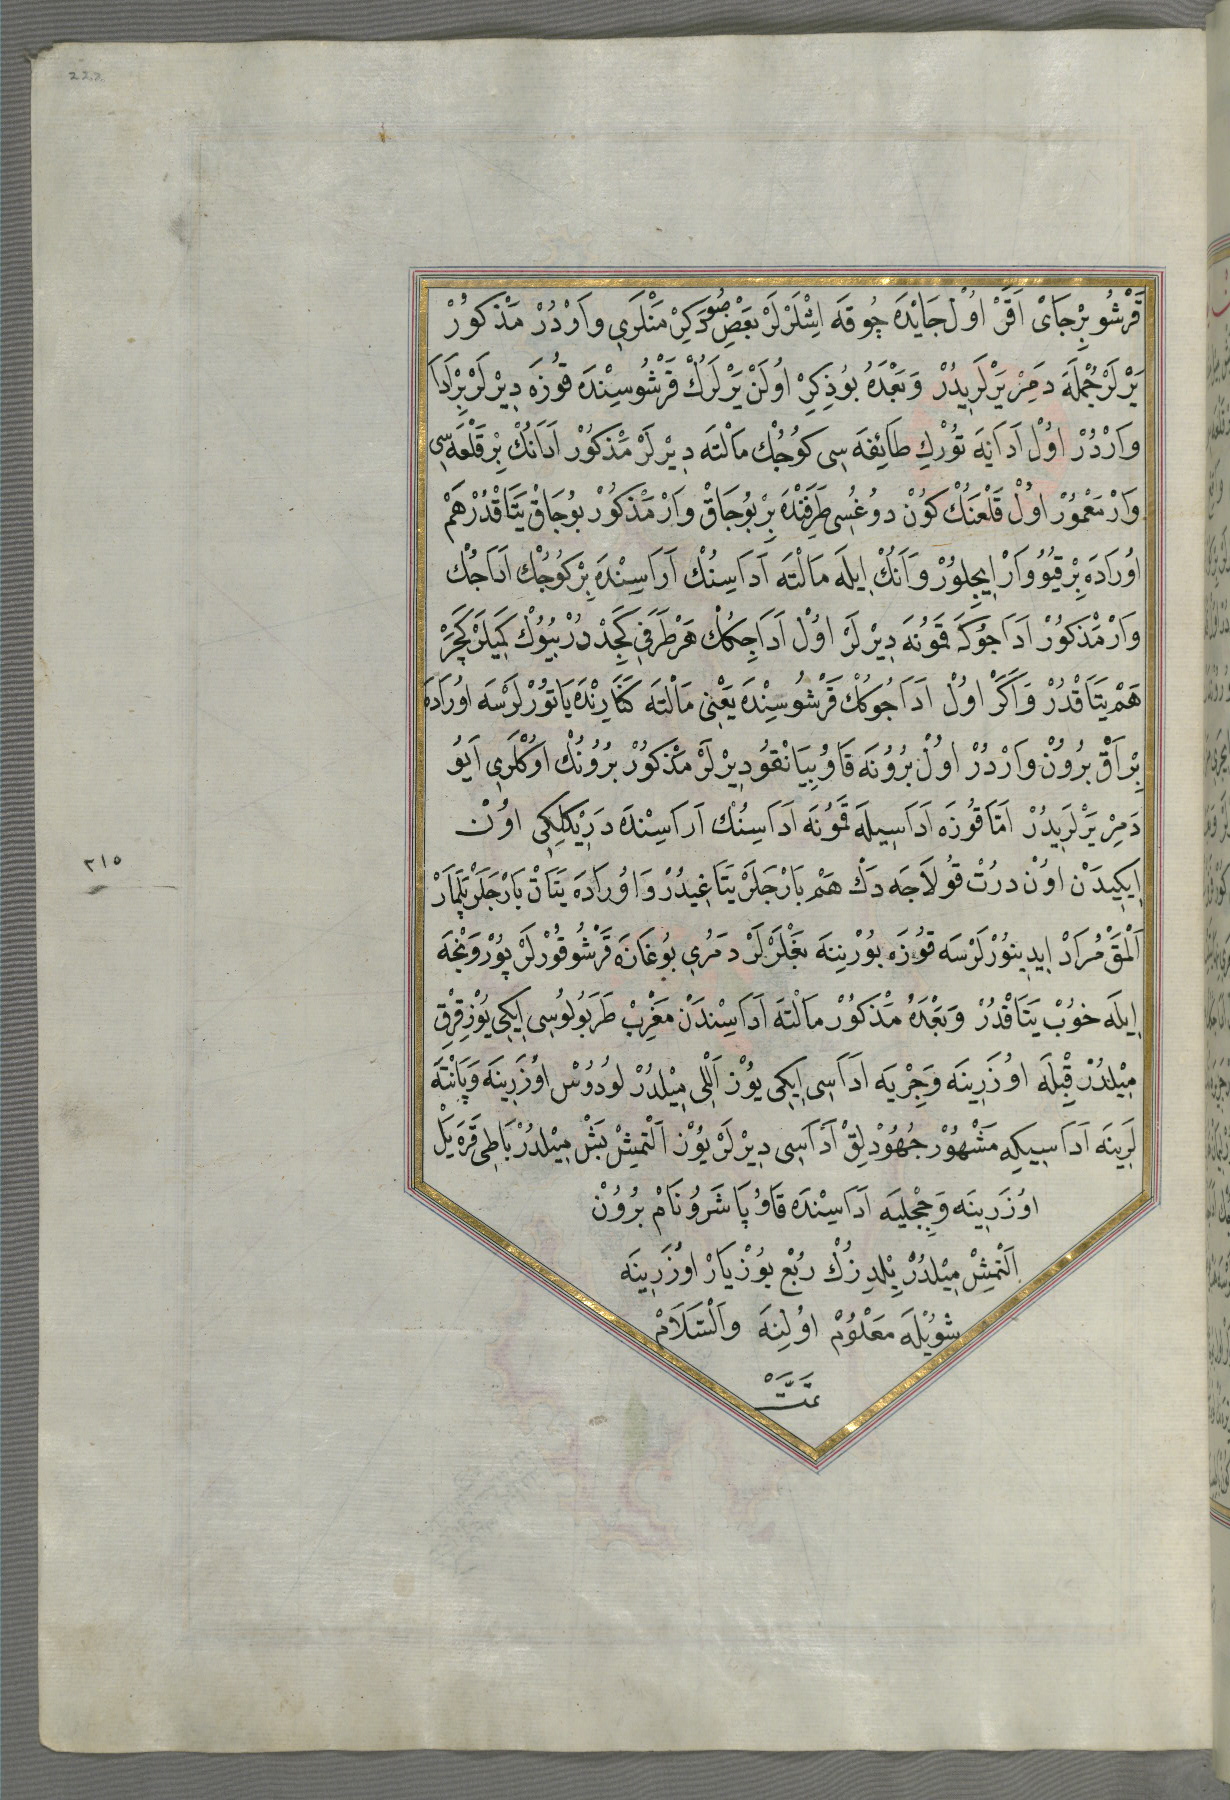 222
قَرْشُو بِرْجَاىْ اَقَرْ اوُلْ جَايْدَه چُوقَه اِشْلَرْلَرْ بَعْضِ صُو دَكِرْمَنْلَرِي وَارْدُرْ مَذْكوُرْ
يَرْلَرْ جُمْلَه دَمِرْ يَرْلَرِيدُرْ وَبَعْدَهُ بُوذِكِرْ اوُلَنْ يَرْلَرُكْ قَرْشُوسِنْدَه قوُزَه دِيْرلَرْ بِرْاَدَا
وَارْدُرْ اوُلْ اَدَايَه تُوْرك طَائِفَه سِى كوُجُكْ مَالْتَه دِيْرلَرْ مَذْكوُرْ اَدَانُكْ بِرْ قَلْعَه سِى
وَارْ مَعْمُورْ اوُلْ قَلْعَنُكْ كوُنْ دوُغُسِى طَرَفِنْدَه بِرْ بوُجَاقْ وَارْ مَذْكوُرْ بوُجَاقْ يَتَاقْدُرْ هَمْ
اوُرَادَه بِرْ قيُوُ وَارْ اِيچِلوُرْ وَاَنُكْ اِيلَه مَالْتَه اَدَاسِنُكْ اَرَاسِنْدَه بِرْ كوُجُكْ اَدَاجُكْ
وَارْ مَذْكوُرْ اَدَاجُوكَه قَمُونَه دِيْرلَرْ اوُلْ اَدَاجِكُكْ هَرْ طَرَفِي كَچِدْ دُرْ بيُوُكْ كَمِيلَرْ كَچَرْ
هَمْ يَتَاقْدُرْ وَاَكَرْ اوُلْ اَدَاجُوكُكْ قَرْشُوسِنْدَه يَعْنِى مَالْتَه كَنَارِنْدَه يَاتوُرْلَرْسَه اوُرَادَه
بِرْ اَقْ بُروُنْ وَارْدُرْ اوُلْ بُروُنَه قَاوُ بِيَانْقوُ دِيْرلَرْ مَذْكوُرْ بُروُنُكْ اوُكْلَرِي اَيوُ
دَمِرْ يَرْلَرِيدُرْ اَمَّا قوُزَه اَدَاسِيلَه قَمُونَه اَدَاسِنُكْ اَرَاسِنْدَه دَرِيْكلِكِى اوُنْ
اِيكِيدَنْ اوُنْ دُرتْ قوُلَاجَه دَكْ هَمْ بَارْجَلَرْ يَتَاغِيدُرْ وَاوُرَادَه يَتَانْ بَارْجَلَرْ يَلِمَارْ
اَلْمَقْ مُرَادْ اِيدِينوُرْلَرْسَه قوُزَه بوُرْنِنَه بَغْلَرْلَرْ دَمُرِي بوُغَازَه قَرْشُو قوُرْلَرْ پوُرْوَنْجَه
اِيلَه خوُبْ يَتَاقْدُرْ وَبَعْدَهُ مَذْكوُرْ مَالْتَه اَدَاسِنْدَنْ مَغْرِبْ طَرَبوُلوُسِى اِيكِى يوُزْ قِرْقْ
مِيْلدُرْ قِبْلَه اوُزَرِينَه وَجِرْبَه اَدَاسِى اِيكِى يوُزْ اَللِّى مِيْلدُرْ لوُدوُسْ اوُزَرِينَه وَپَانْتَه
لَرِينَه اَدَاسِيكِه مَشْهوُرْ جُهوُدْلِقْ اَدَاسِى دِيْرلَرْ يوُزْ اَلْتمِشْ بَشْ مِيْلدُرْ بَاطِى قَرَه يَلْ
اوُزَرِينَه وَچِچِليَه اَدَاسِنْدَه قَاوُ پَاشَروُ نَامْ بُروُنْ
اَلْتمِشْ مِيْلدُرْ يِلْدِزُكْ رُبْعِ پوُزْيَازْ اوُزَرِينَه
شوُيْلَه مَعْلوُمْ اوُلِنَه وَالْسَّلَامْ
تَمَّتْ
٣١٥